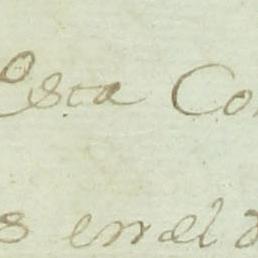 Esta Co
s en el